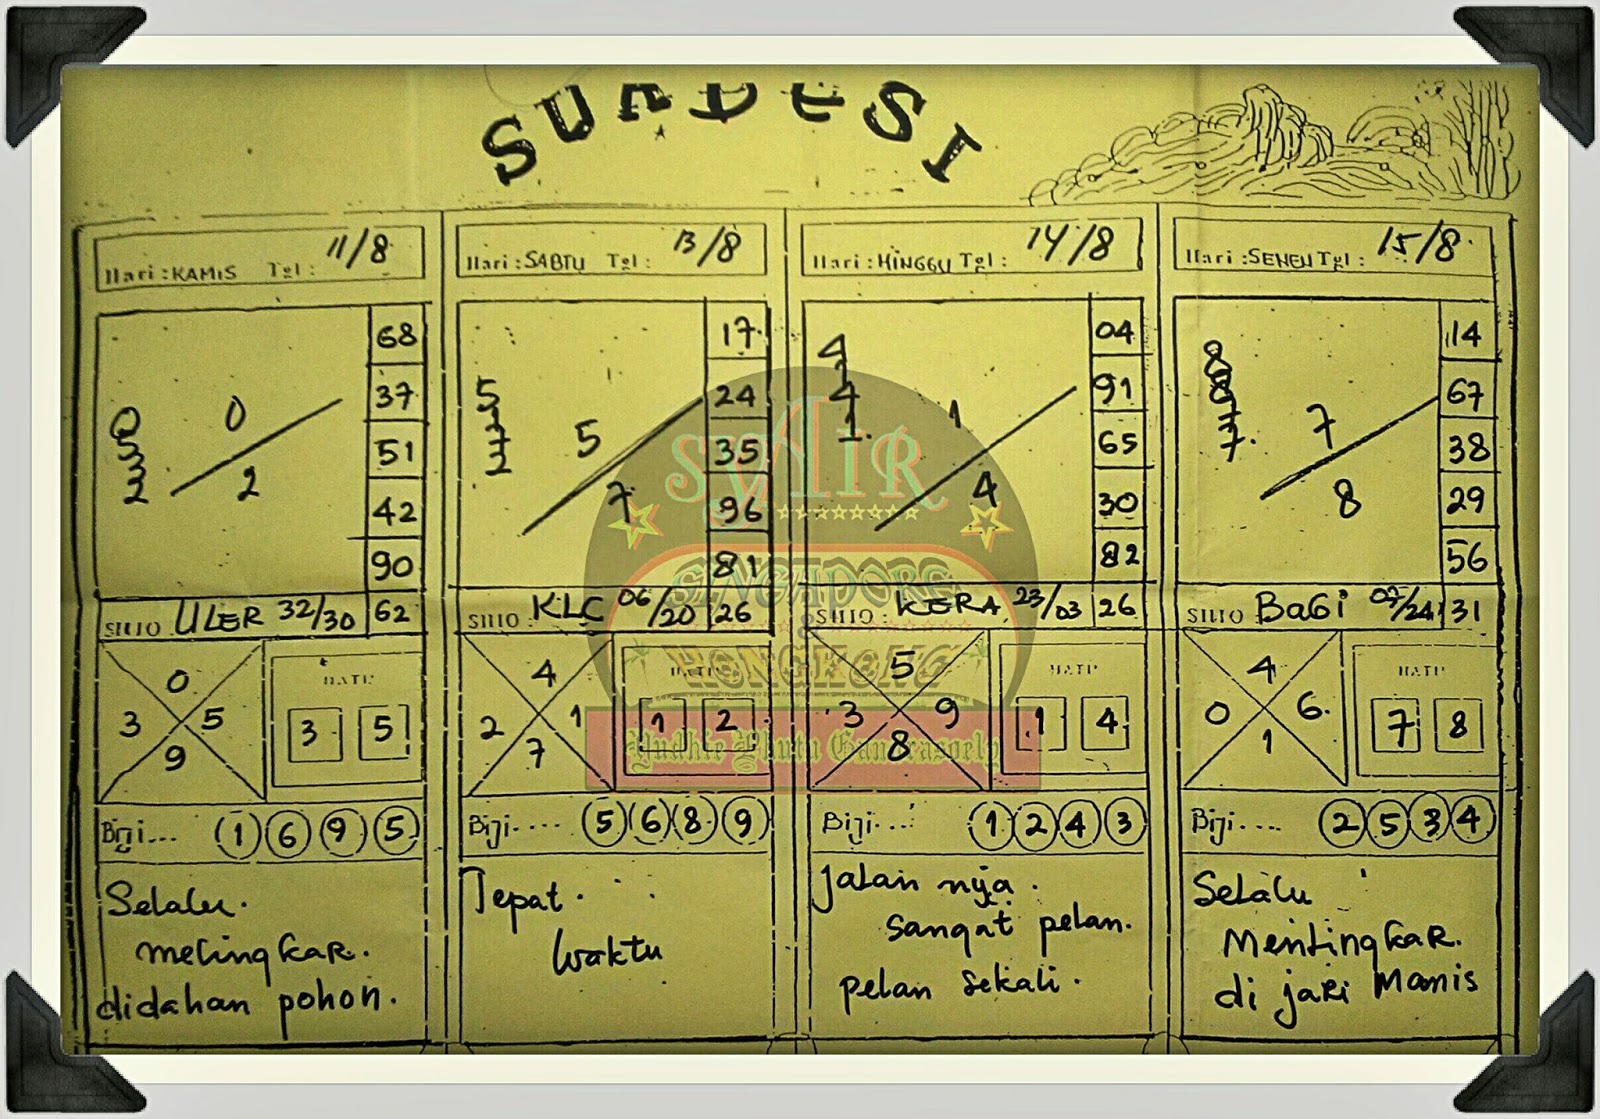 SURDESI
Hari : KAMIS Tgl : 11/8
68
37
51
42
90
0
2
SHIO ULER 32/30 62
0
3 5
9
3 5
Biji... 1 6 9 5
Selalu.
melingkar.
didahan pohon.
Hari : SABTU Tgl : 13/8
17
24
35
96
81
5
7
SHIO : KLC 06/20 26
4
2 1
7
1 2
Biji.... 5 6 8 9
Tepat.
Waktu
Hari : MINGGU Tgl : 14/8
04
91
65
30
82
4
4
1.
1
4
SHIO : KERA 23/03 26
5
3 9
8
1 4
Biji... 1 2 4 3
Jalan nya.
sangat pelan.
pelan sekali.
Hari : SENEN Tgl : 15/8.
14
67
38
29
56
7
8
SHIO : BABI 07/24 31
4
0 6.
1
7 8
Biji.... 2 5 3 4
Selalu
Mentingkar.
di jari Manis
SYAIR
SINGAPORE
&
HONGKONG